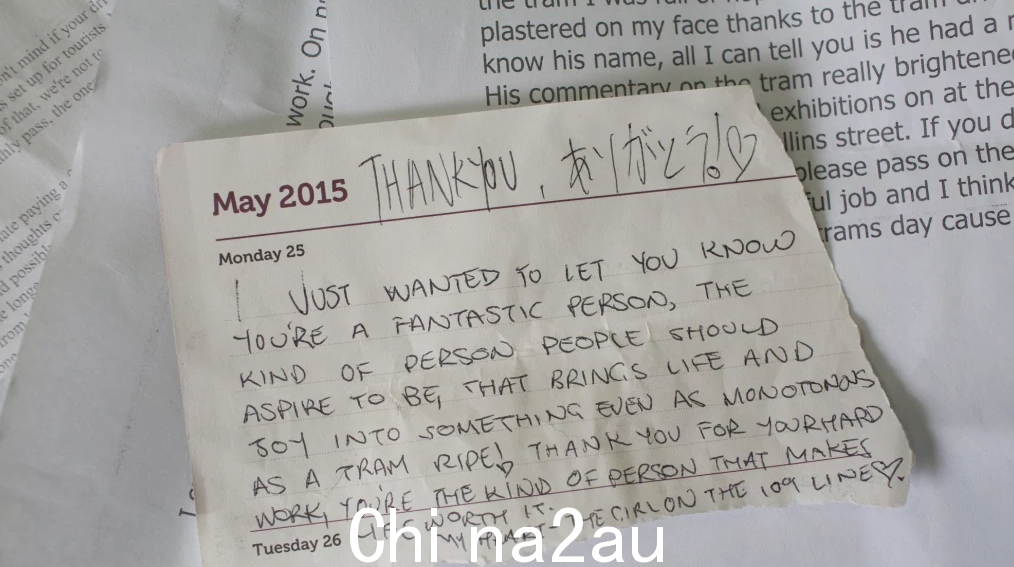 the tram I was full of
plastered on my face thanks to the tram
know his name, all I can tell you is he had a
His commentary on the tram really brightene
exhibitions on at the
llins street. If you d
please pass on the
ful job and I think
trams day cause
work. On
May 2015
THANK YOU, ありがとう!♡
Monday 25
I JUST WANTED TO LET YOU KNOW
YOU'RE A FANTASTIC PERSON, THE
KIND OF PERSON PEOPLE SHOULD
ASPIRE TO BE, THAT BRINGS LIFE AND
JOY INTO SOMETHING EVEN AS MONOTONOUS
AS A TRAM RIDE! THANK YOU FOR YOUR HARD
WORK, YOU'RE THE KIND OF PERSON THAT MAKES
WORTH IT. THE GIRL ON THE 109 LINE♡.
Tuesday 26
Chi na2au